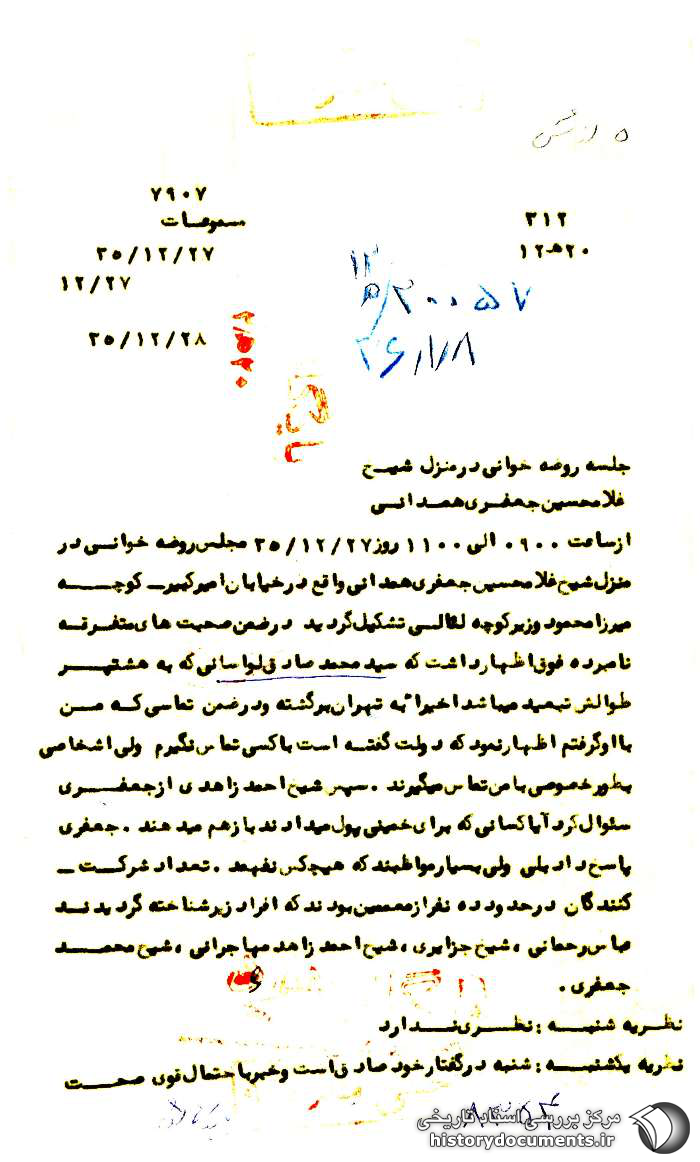 ۷۹۰۷
مسموعات
۳۱۲
۳۵/۱۲/۲۷
۲۰ھ۱۲
۱۲/۲۷
۲۰۰۵۷
۳۵/۱۲/۲۸
۳۶/۱/۸
جلسه روضه خوانی در منزل شیخ
غلامحسین جعفری همدانی
از ساعت ۰۹۰۰ الی ۱۱۰۰ روز ۳۵/۱۲/۲۷ مجلس روضه خوانی در
منزل شیخ غلامحسین جعفری همدانی واقع در خیابان امیرکبیر ـ کوچه
میرزا محمود وزیر کوچه لقالی تشکیل گردید در ضمن صحبت های متفرقه
نامبرده فوق اظهار داشت که سید محمد صادق لواسانی که به هشتپر
طوالش تبعید میباشد اخیرا به تهران برگشته ودر ضمن تماسی که من
با او گرفتم اظهار نمود که دولت گفته است با کسی تماس نگیرم ولی اشخاصی
بطور خصوصی با من تماس میگیرند . سپس شیخ احمد زاهدی از جعفری
سئوال کرد آیا کسانی که برای خمینی پول میدادند باز هم میدهند . جعفری
پاسخ داد بلی ولی بسیار مواظبند که هیچکس نفهمد . تعداد شرکت ـ
کنندگان در حدود ده نفر از معممین بودند که افراد زیر شناخته گردیدند
عباس رحمانی ، شیخ جزایری ، شیخ احمد زاهد مهاجرانی ، شیخ محمد
جعفری .
نظریه شنبه : نظری ندارد
نظریه یکشنبه : شنبه در گفتار خود صادق است و خبر با احتمال قوی صحت
مرکز بررسی اسناد تاریخی
historydocuments.ir